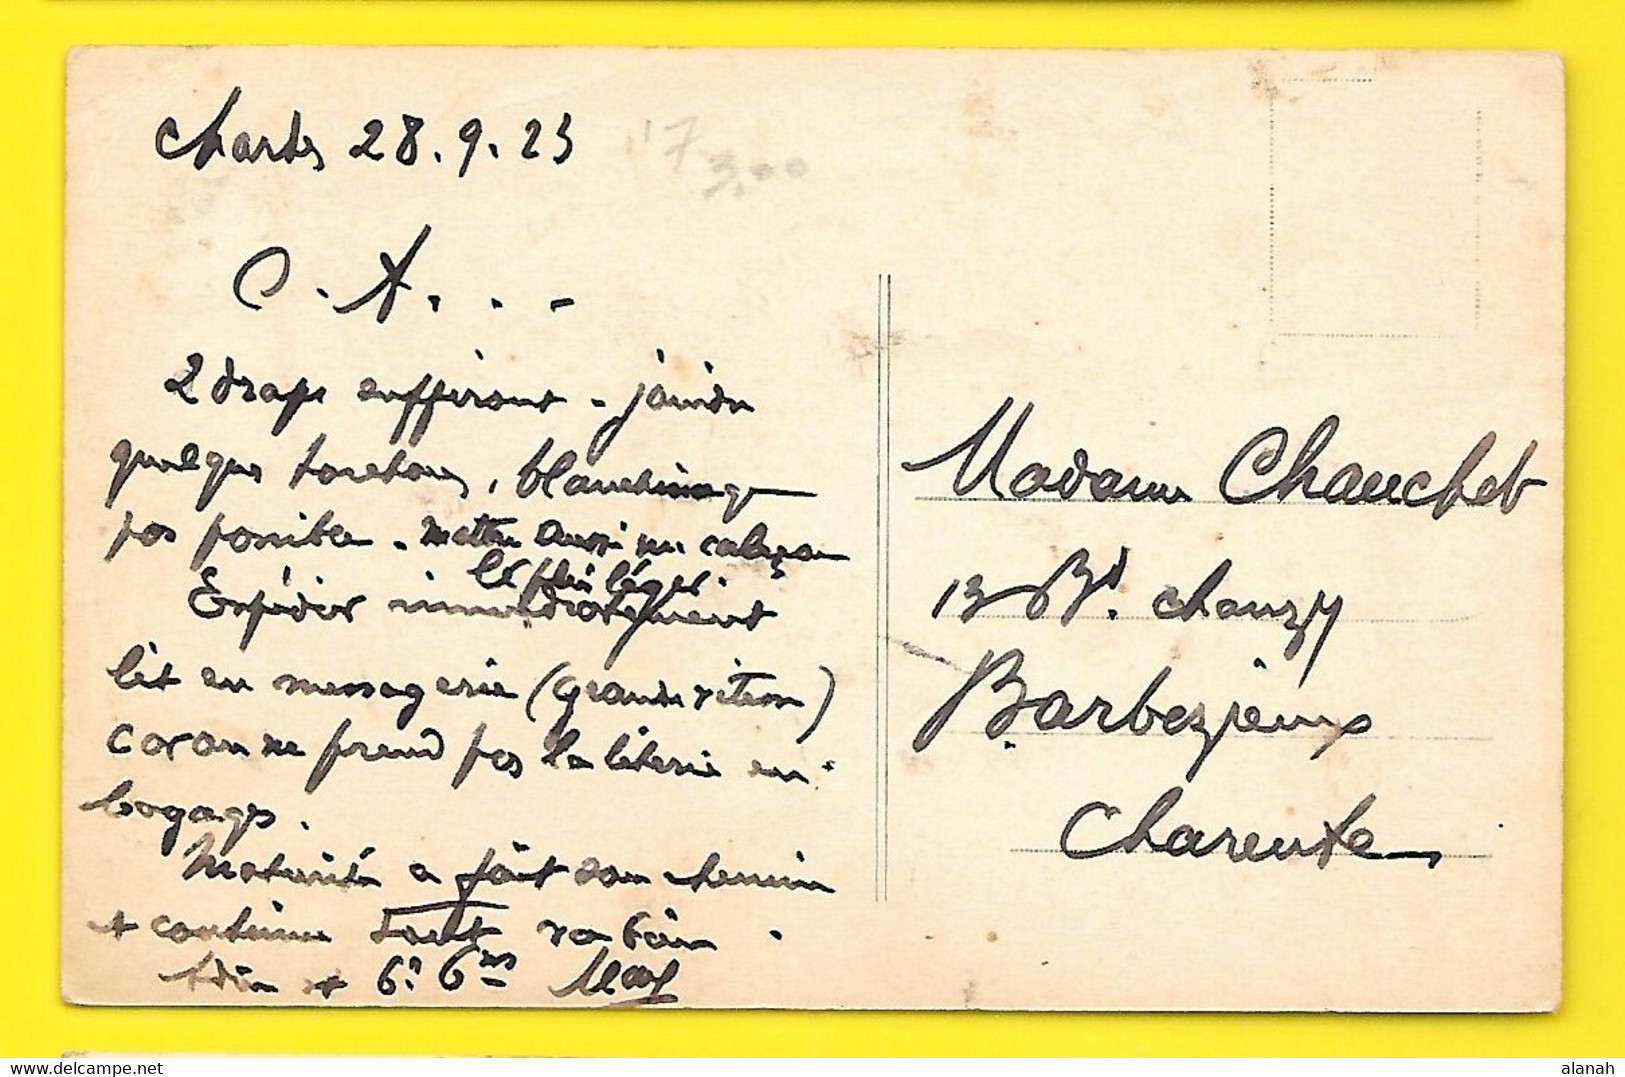 Chartres 28.9.23
17
3,00
C. A. . . -
2 draps suffiront - joindre
quelques torchons, blanchissage
pas possible. mettre aussi un caleçon
le plus léger.
Expédier immédiatement
lit en messagerie (grande vitesse)
car on ne prend pas la literie en
bagages.
a fait son chemin
et continue tout va bien.
Adieu et Bs Bers Max
Madame Chauchet
13 Bd. Chanzy
Barbezieux
Charente
delcampe.net
alanah